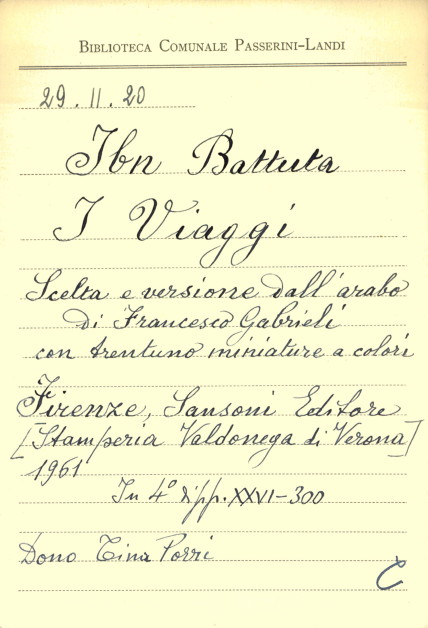 BIBLIOTECA COMUNALE PASSERINI-LANDI
29.11.20
Ibn Battuta
I Viaggi
Scelta e versione dall'arabo
di Francesco Gabrieli
con trentuno miniature a colori
Firenze, Sansoni Editore
[Stamperia Valdonega di Verona]
1961
In 4° di pp. XXVI-300
Dono Tina Porri
C